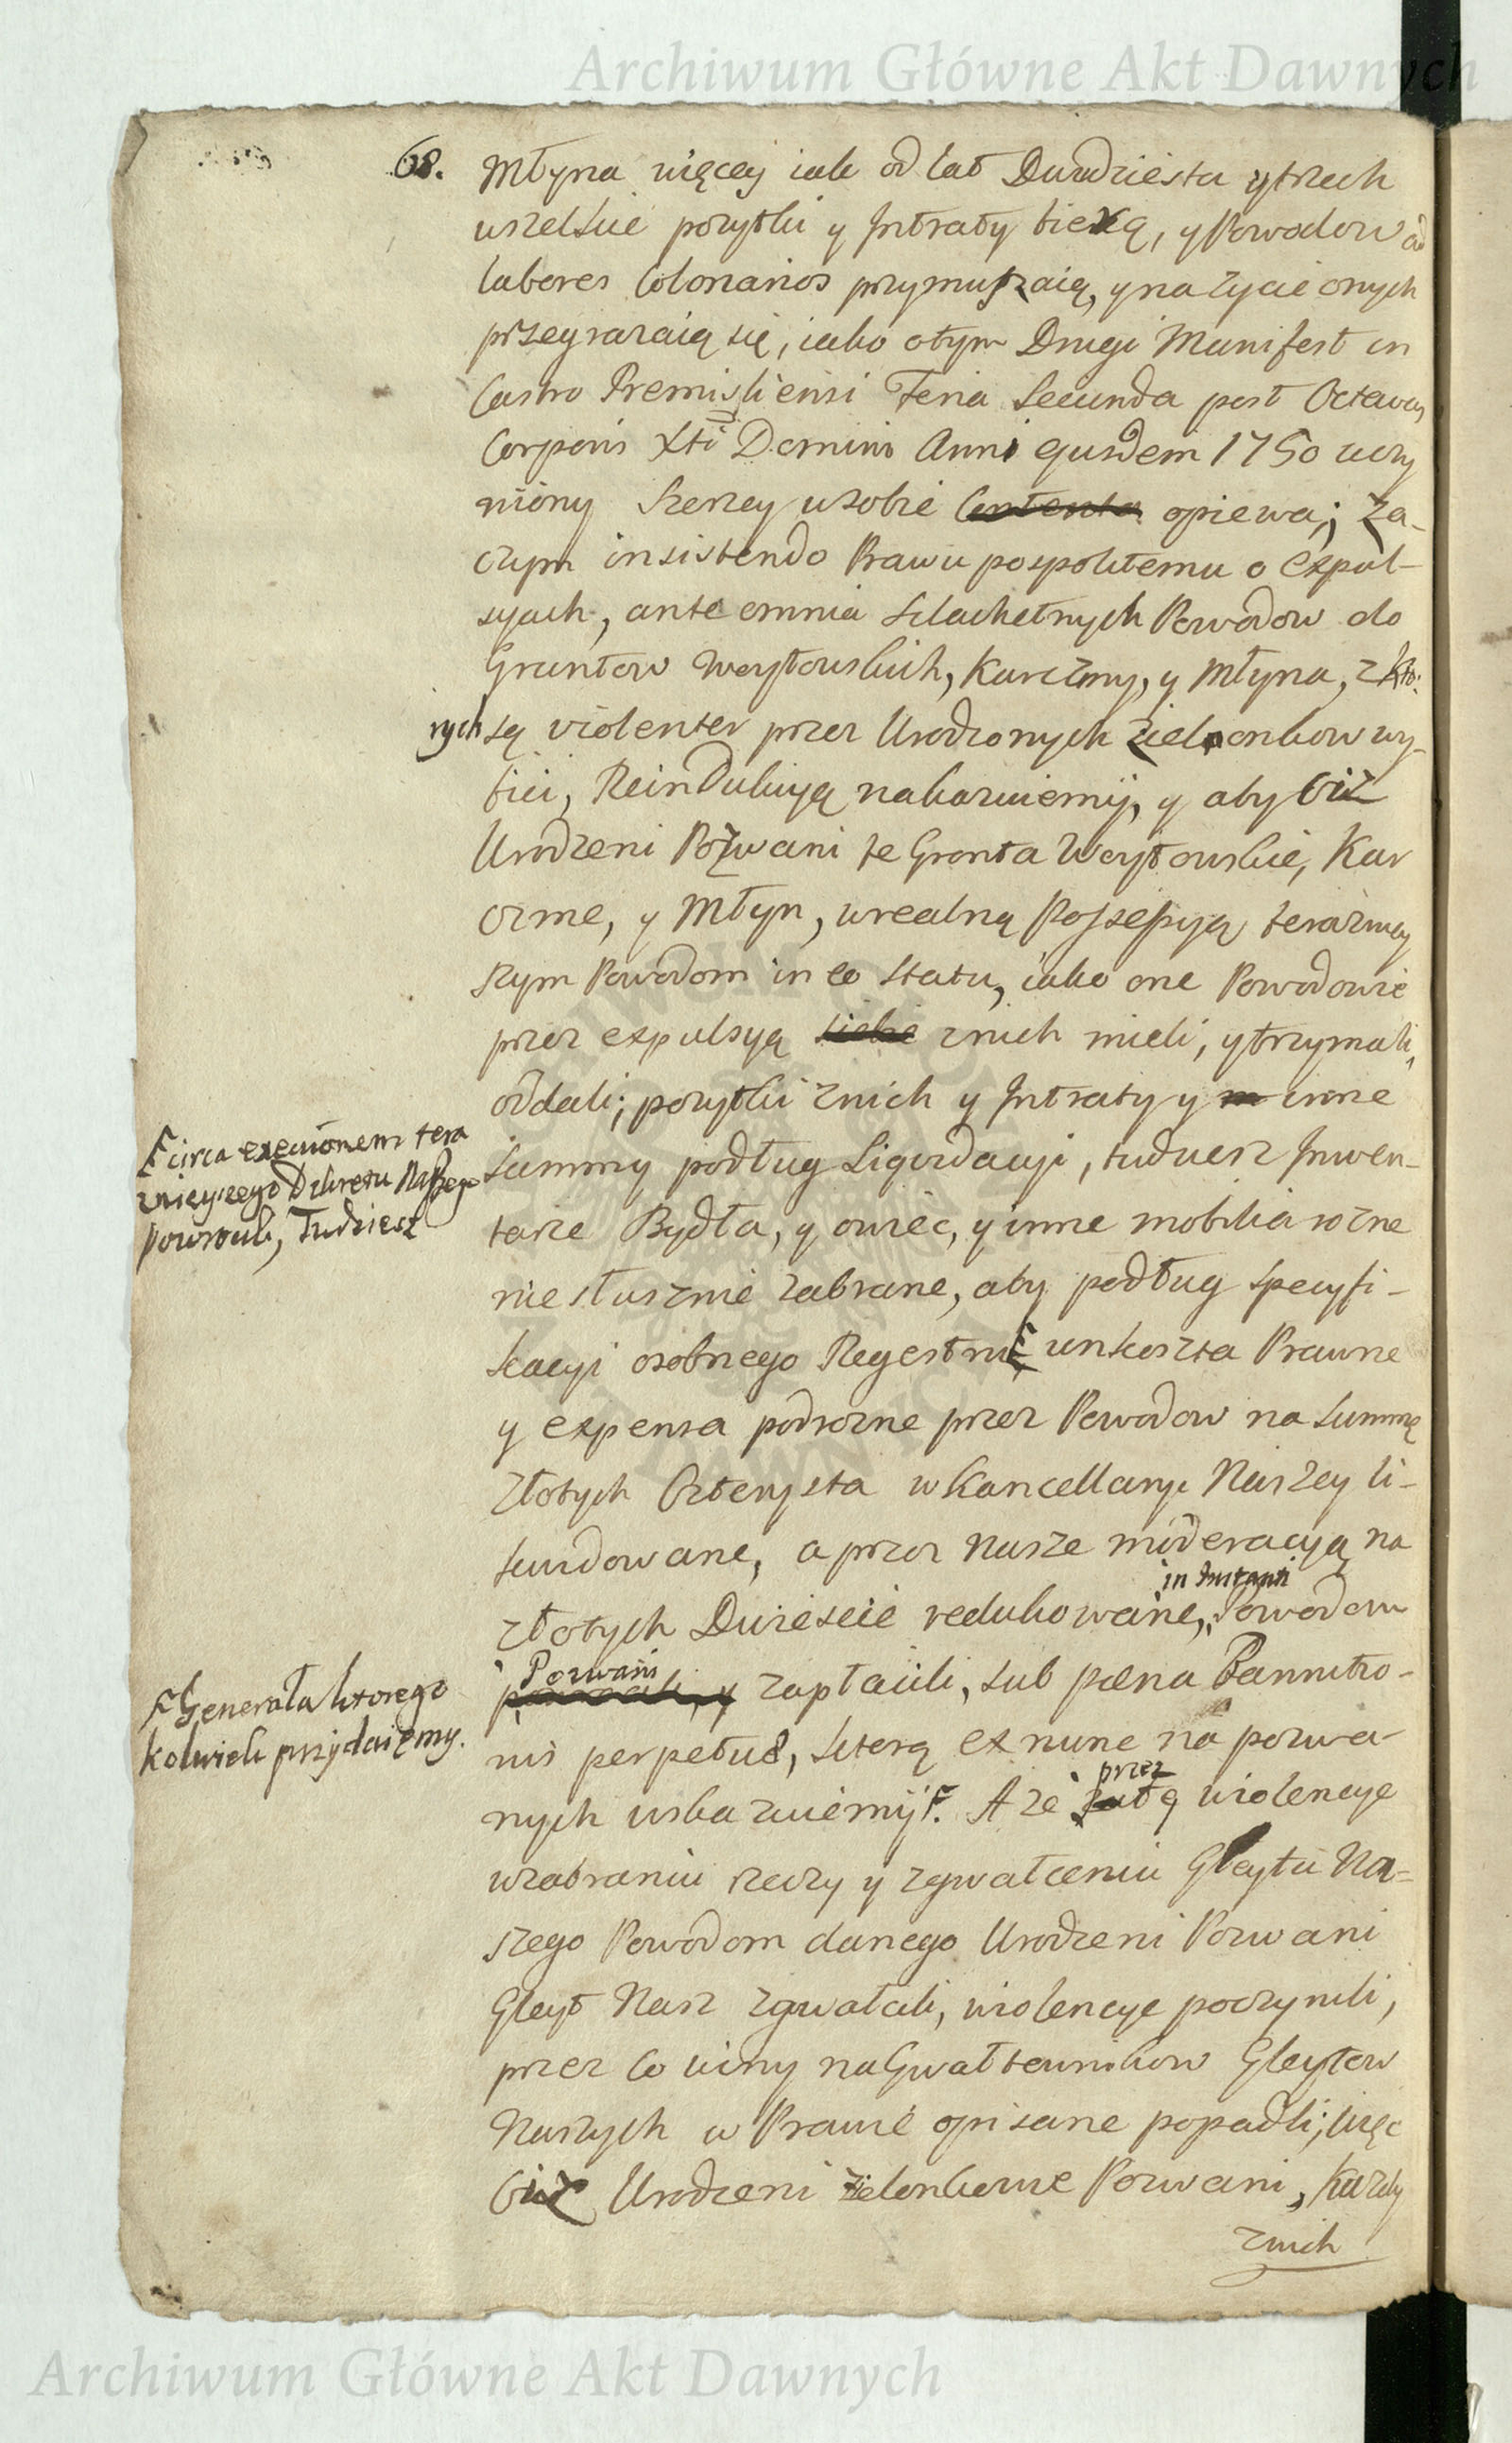 Archiwum Główne Akt Dawnych
68. Młyna więcey iak od lat Dwadziestu y trzech
wszelkie pożytki y Intraty bierą, y Powodow ad
labores Colonarios przymuszaią, y na życie onych
przegrażaią się, iako o tym Drugi Manifest in
Castro Premisliensi Feria Secunda post Octavas
Corporis Xti Domini Anni ejusdem 1750 uczy
niony szerzey w sobie Contenta opiewa; Za-
czym insistendo Prawu pospolitemu o expul-
syach, ante omnia Szlachetnych Powodow do
Gruntow Woytowskich, Karczmy, y Młyna, z kto:
rych są violenter przez Urodzonych Zielonkow wy-
bici, Reindukcyą nakazuiemy, y aby Ciż
Urodzeni Pozwani te Gronta Woytowskie, Kar
czme, y Młyn, w realną Possessyą teraźniey
szym Powodom in eo statu, iako one Powodowie
przez expulsyą siebie z nich mieli, y trzymali,
oddali; pożytki z nich y Intraty y in inne
Summy podług Ligwidacyi, tudziesz Inwen-
tarze Bydła, y owiec, y inne mobilia rożne
niesłusznie zabrane, aby podług specyfi-
kacyi osobnego Regestru unkoszta Prawne
y expensa podrożne przez Powodow na summę
złotych Czterysta w Kancellaryi Naszey li-
kwidowane, a przez Nasze moderacyą na
in Instanti
złotych Dwieście redukowane, Powodom
Pozwani
powrocili, y zapłacili, sub pœna Bannitio-
nis perpetuæ, ktorą ex nunc na pozwa-
przez
nych wskazuiemy. A że tę wiolencye
w zabraniu rzeczy y zgwałceniu Gleytu Na-
szego Powodom danego Urodzeni Pozwani
Gleyt Nasz zgwałcili, wiolencye poczynili,
przez co winy na Gwałtownikow Gleytow
Naszych w Prawie opisane popadli; więc
Ciż Urodzeni Zielonkowie Pozwani, każdy
z nich
circa executionem tera
znieyszego Dekretu Naszego
powrocili, Tudziesz
Generała ktorego
kolwiek przydaiemy.
Archiwum Główne Akt Dawnych